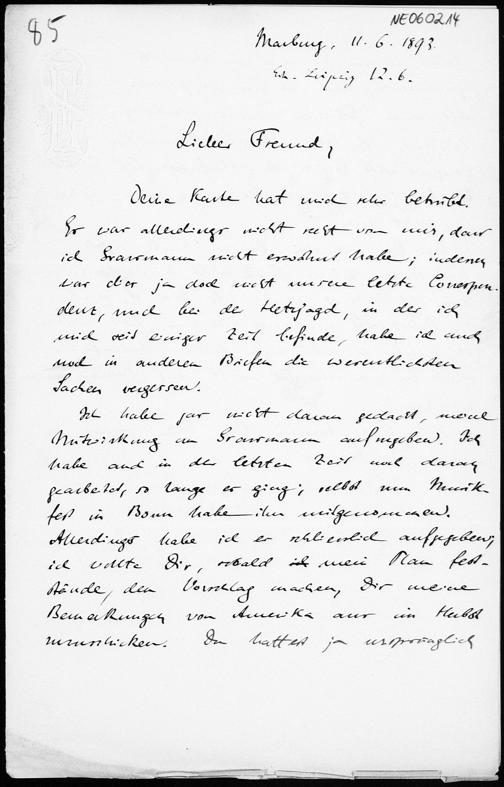 85
NE060214
Marburg, 11.6.1893.
Erh. Leipzig 12.6.
Lieber Freund,
Deine Karte hat mich sehr betrübt.
Es war allerdings nicht recht von mir, dass
ich Grassmann nicht erwähnt habe; indessen
war dies ja doch nicht unsere letzte Correspon-
denz, und bei der Hetzjagd, in der ich
mich seit einiger Zeit befinde, habe ich auch
noch in anderen Briefen die wesentlichsten
Sachen vergessen.
Ich habe gar nicht daran gedacht, meine
Mitwirkung am Grassmann aufzugeben. Ich
habe auch in der letzten Zeit noch daran
gearbeitet, so lange es ging; selbst zum Musik-
fest in Bonn habe ihn mitgenommen.
Allerdings habe ich es schliesslich aufgegeben;
ich wollte Dir, sobald mein Plan fest-
stände, den Vorschlag machen, Dir meine
Bemerkungen von Amerika aus im Herbst
zuzuschicken. Du hattest ja ursprünglich